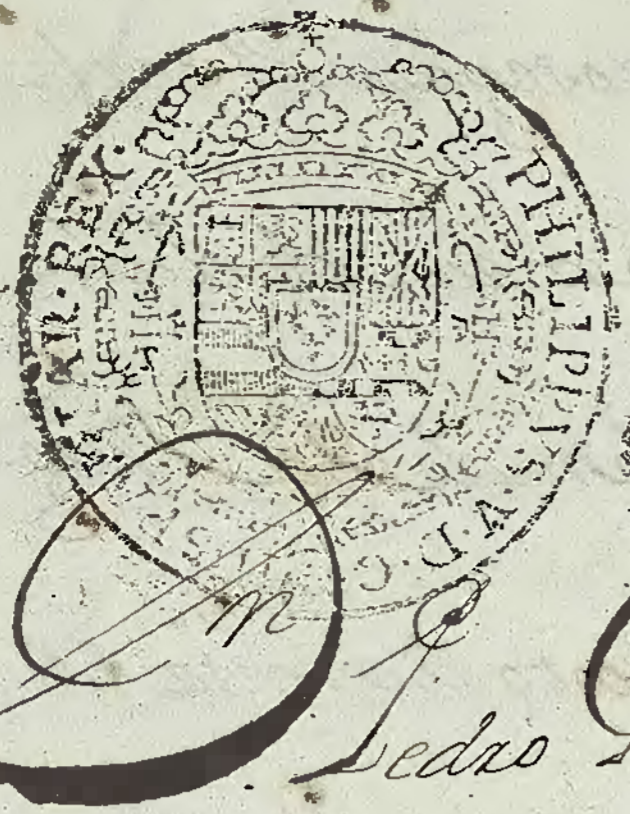 PHILIPPVS·V·D·G·
REX·
Dn Pedro